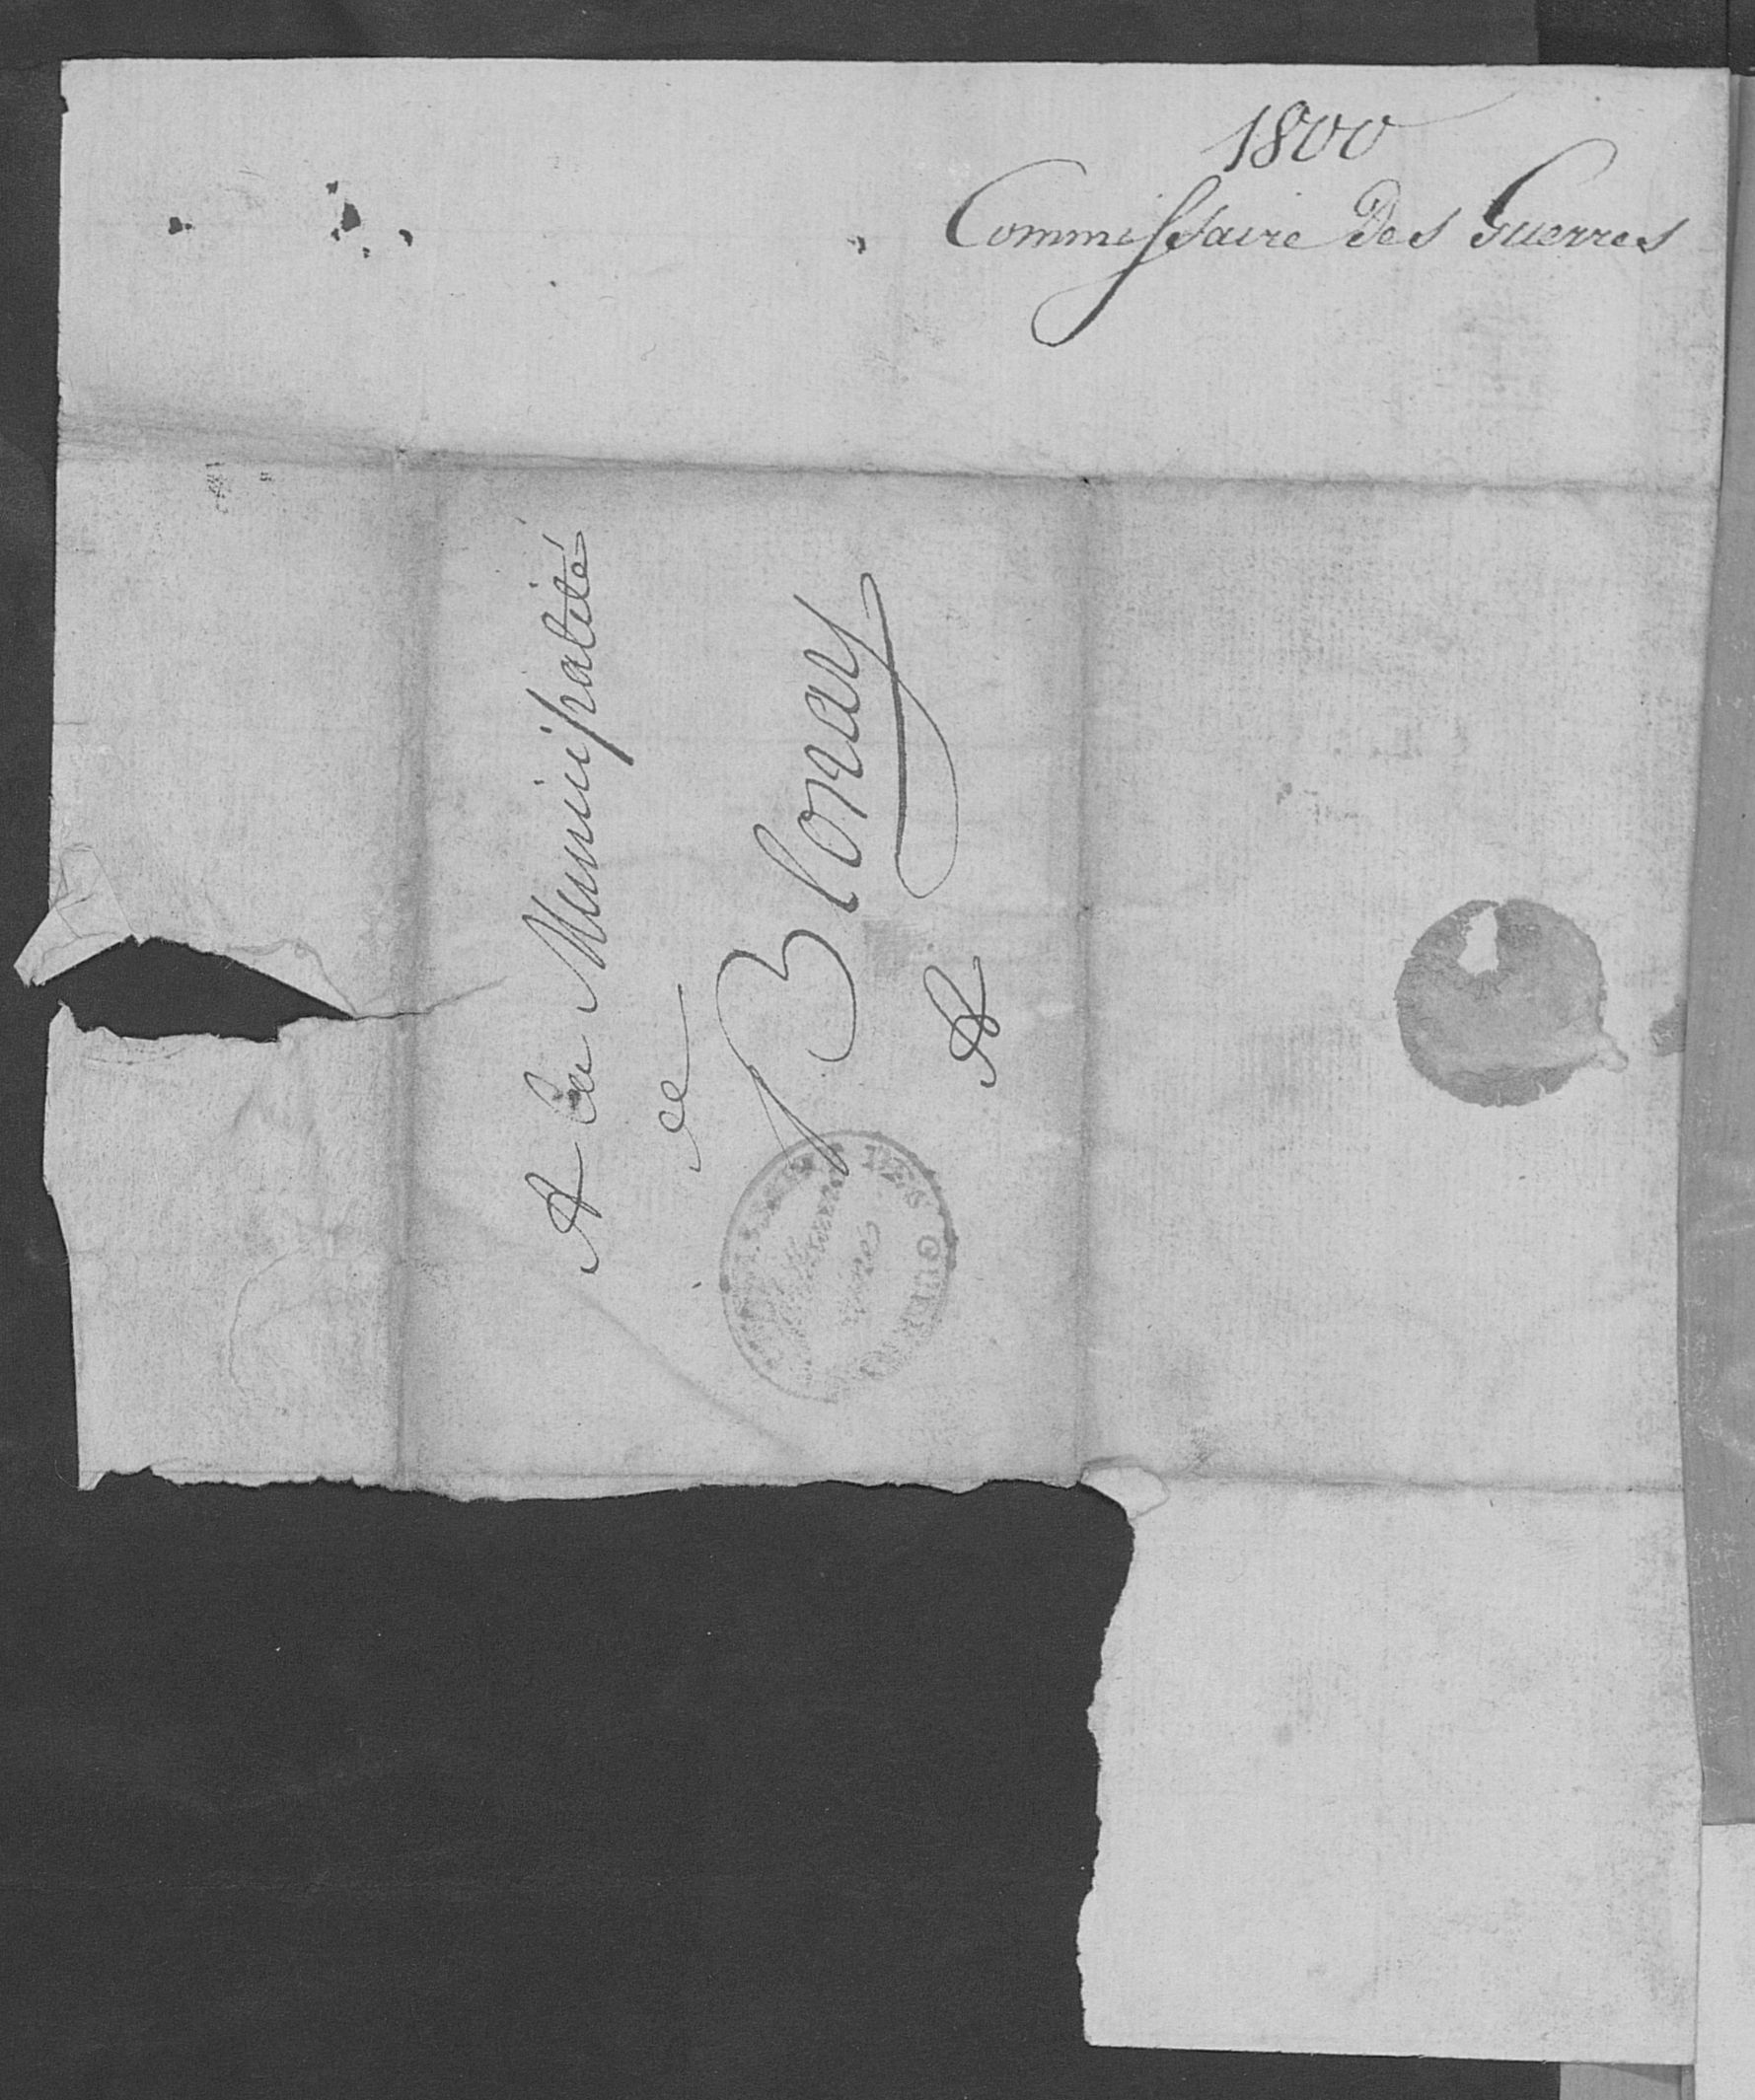 1800
Commissaire Des Guerres
A la Municipalité
de
Blonay
A
DES GUERRES